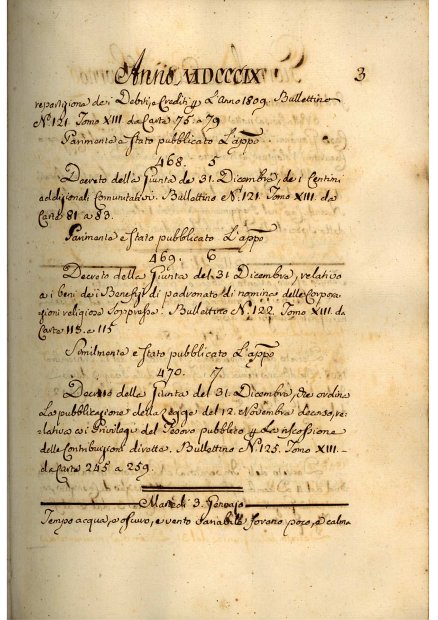 Anno MDCCCIX 3
repartizione dei Debiti, e Crediti p L'Anno 1809. Bullettino
N.º 121. Tomo XIII. da Carte 75. a 79
Parimente è stato pubblicato L'appo
468. 5
Decreto della Giunta de 31. Dicembre, dei Centimi
addizionali Comunitativi. Bullettino N.º 121. Tomo XIII. da
Carte 81 a 83.
Parimente è stato pubblicato L'appo
469. 6
Decreto della Giunta del 31 Dicembre, relativo
a i beni dei Benefizi di padronato di nomina delle Corpora-
zioni religiose soppresse. Bullettino N. 122. Tomo XIII. da
Carte 113. a 115
Similmente è stato pubblicato L'appo
470. 7.
Decreto della Giunta del 31. Dicembre, che ordina
La pubblicazione della Legge del 12. Novembre decorso, re-
lativa ai Privilegi del Tesoro pubblico p La riscossione
delle Contribuzioni dirette. Bullettino N.º 125. Tomo XIII.-
da Carte 245 a 259.
Martedì 3. Gennajo
Tempo acqua, e oscuro, e vento variabile forano poco, e calma